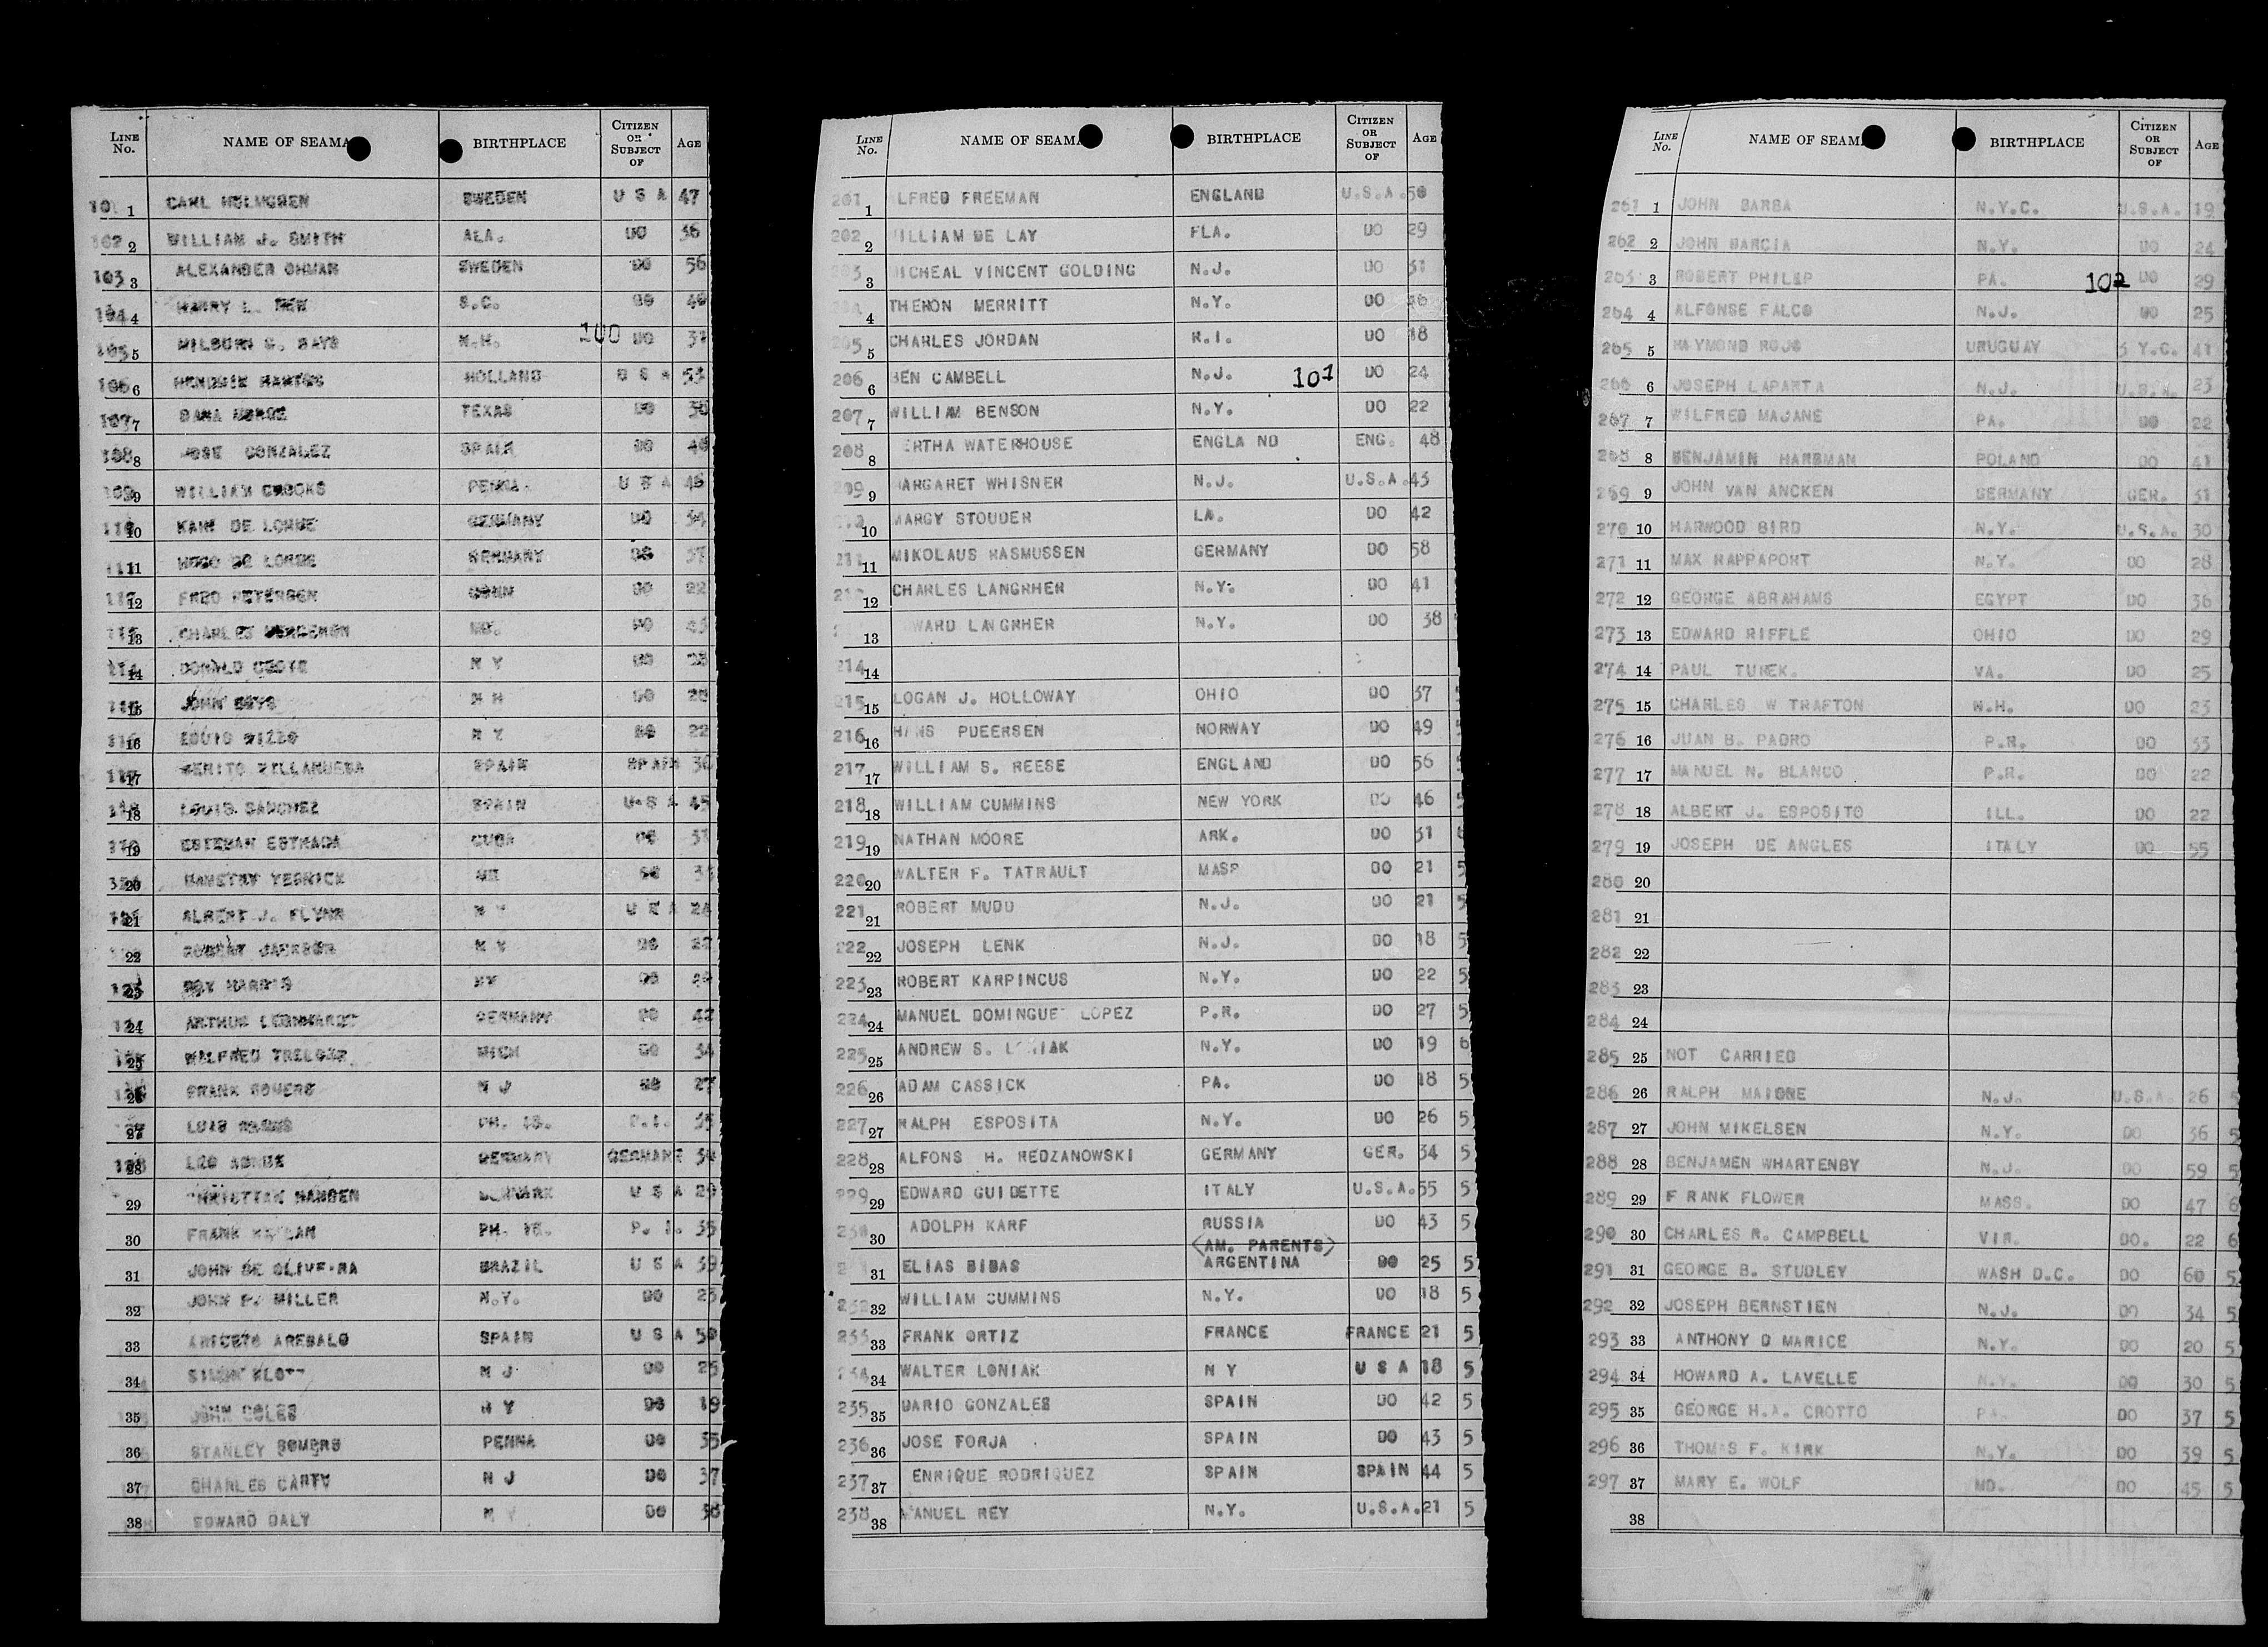 LINE No. NAME OF SEAMA BIRTHPLACE CITIZEN OR SUBJECT OF AGE
1 CARL HOLMGREN SWEDEN U S A 47
102 2 WILLIAM J. SMITH ALA. DO 36
103 3 ALEXANDER OHMAN SWEDEN DO 56
104 4 HARRY L. S.C. DO 40
105 5 N.H. 100 DO 31
106 6 HOLLAND U S A 53
107 7 TEXAS DO
108 8 JOSE GONZALEZ SPAIN DO
109 9 WILLIAM CROOKS PENNA. U S A
10 DE LORME GERMANY DO 34
11 DE LORME GERMANY DO 37
12 FRED PETERSEN CONN DO 22
13 CHARLES DO
14 DONALD N Y DO
15 JOHN N H DO
16 LOUIS N Y DO 22
17 SPAIN SPAIN
18 LOUIS SANCHEZ SPAIN U S A 45
19 ESTEBAN ESTRADA CUBA DO 31
20 DO
21 ALBERT J. FLYNN N Y U S A
22 ROBERT JACKSON N Y DO
23 ROY HARRIS NY DO
24 ARTHUR GERMANY DO 42
25 MICH DO 34
26 FRANK SOMERS N J DO 27
27 LUIS PH. IS. P.I. 35
28 LEO GERMANY GERMANY
29 CHRISTIAN HANSEN DENMARK U S A 29
30 FRANK PH. IS. P. I. 35
31 JOHN DE OLIVEIRA BRAZIL U S A 39
32 JOHN P. MILLER N.Y. DO 23
33 ANICETO AREBALO SPAIN U S A 50
34 N J DO 25
35 JOHN COLES N Y DO 19
36 STANLEY SOMERS PENNA DO 35
37 CHARLES CARTY N J DO 37
38 EDWARD DALY N Y DO 38
LINE No. NAME OF SEAMA BIRTHPLACE CITIZEN OR SUBJECT OF AGE
201 1 LFRED FREEMAN ENGLAND U.S.A. 50
202 2 ILLIAM DE LAY FLA. DO 29
3 ICHEAL VINCENT GOLDING N.J. DO 31
4 THERON MERRITT N.Y. DO
5 CHARLES JORDAN R.I. DO 18
206 6 BEN CAMBELL N.J. 101 DO 24
207 7 WILLIAM BENSON N.Y. DO 22
208 8 ERTHA WATERHOUSE ENGLA ND ENG. 48
209 9 ARGARET WHISNER N.J. U.S.A. 43
10 MARGY STOUDER LA. DO 42
211 11 MIKOLAUS RASMUSSEN GERMANY DO 58
12 CHARLES LANGRHER N.Y. DO 41
13 WARD LANGRHER N.Y. DO 38
214 14
215 15 LOGAN J. HOLLOWAY OHIO DO 37
216 16 HANS PUEERSEN NORWAY DO 49
217 17 WILLIAM S. REESE ENGLAND DO 56
218 18 WILLIAM CUMMINS NEW YORK DO 46 5
219 19 NATHAN MOORE ARK. DO 31
220 20 WALTER F. TATRAULT MASS DO 21 5
221 21 ROBERT MUDU N.J. DO 21 5
222 22 JOSEPH LENK N.J. DO 18 5
223 23 ROBERT KARPINCUS N.Y. DO 22 5
224 24 MANUEL DOMINGUE LOPEZ P.R. DO 27 5
225 25 ANDREW S. N.Y. DO 19 6
226 26 ADAM CASSICK PA. DO 18 5
227 27 RALPH ESPOSITA N.Y. DO 26 5
228 28 ALFONS H. REDZANOWSKI GERMANY GER. 34 5
229 29 EDWARD GUIDETTE ITALY U.S.A. 55 5
230 30 ADOLPH KARF RUSSIA DO 43 5
(AM. PARENTS)
31 ELIAS BIBAS ARGENTINA DO 25 5
232 32 WILLIAM CUMMINS N.Y. DO 18 5
233 33 FRANK ORTIZ FRANCE FRANCE 21 5
234 34 WALTER LONIAK N Y U S A 18 5
235 35 DARIO GONZALES SPAIN DO 42 5
236 36 JOSE TORJA SPAIN DO 43 5
237 37 ENRIQUE RODRIQUEZ SPAIN SPAIN 44 5
238 38 MANUEL REY N.Y. U.S.A. 21 5
LINE No. NAME OF SEAM BIRTHPLACE CITIZEN OR SUBJECT OF AGE
261 1 JOHN BARBA N.Y.C. U.S.A. 19
262 2 JOHN GARCIA N.Y. DO 24
263 3 ROBERT PHILIP PA. 102 DO 29
264 4 ALFONSE FALCO N.J. DO 25
265 5 RAYMOND ROJS URUGUAY 41
266 6 JOSEPH LAPARTA N.J. U.S.A. 23
267 7 WILFRED MAJANE PA. DO 22
268 8 BENJAMIN HARBMAN POLAND DO 41
269 9 JOHN VAN ANCKEN GERMANY GER. 31
270 10 HARWOOD BIRD N.Y. U.S.A. 30
271 11 MAX RAPPAPORT N.Y. DO 28
272 12 GEORGE ABRAHAMS EGYPT DO 36
273 13 EDWARD RIFFLE OHIO DO 29
274 14 PAUL TUREK. VA. DO 25
275 15 CHARLES W TRAFTON N.H. DO 23
276 16 JUAN B. PADRO P.R. DO 33
277 17 MANUEL N. BLANCO P.R. DO 22
278 18 ALBERT J. ESPOSITO ILL. DO 22
279 19 JOSEPH DE ANGLES ITALY DO 55
280 20
281 21
282 22
283 23
284 24
285 25 NOT CARRIED
286 26 RALPH MAIONE N.J. U.S.A. 26 5
287 27 JOHN MIKELSEN N.Y. DO 36 5
288 28 BENJAMEN WHARTENBY N.J. DO 59 5
289 29 F RANK FLOWER MASS. DO 47 6
290 30 CHARLES R. CAMPBELL VIR. DO. 22 6
291 31 GEORGE B. STUDLEY WASH D.C. DO 60 5
292 32 JOSEPH BERNSTIEN N.J. DO 34 5
293 33 ANTHONY D MARICE N.Y. DO 20 5
294 34 HOWARD A. LAVELLE N.Y. DO 30 5
295 35 GEORGE H.A. CROTTO PA. DO 37 5
296 36 THOMAS F. KIRK N.Y. DO 39 5
297 37 MARY E. WOLF MD. DO 45 5
38